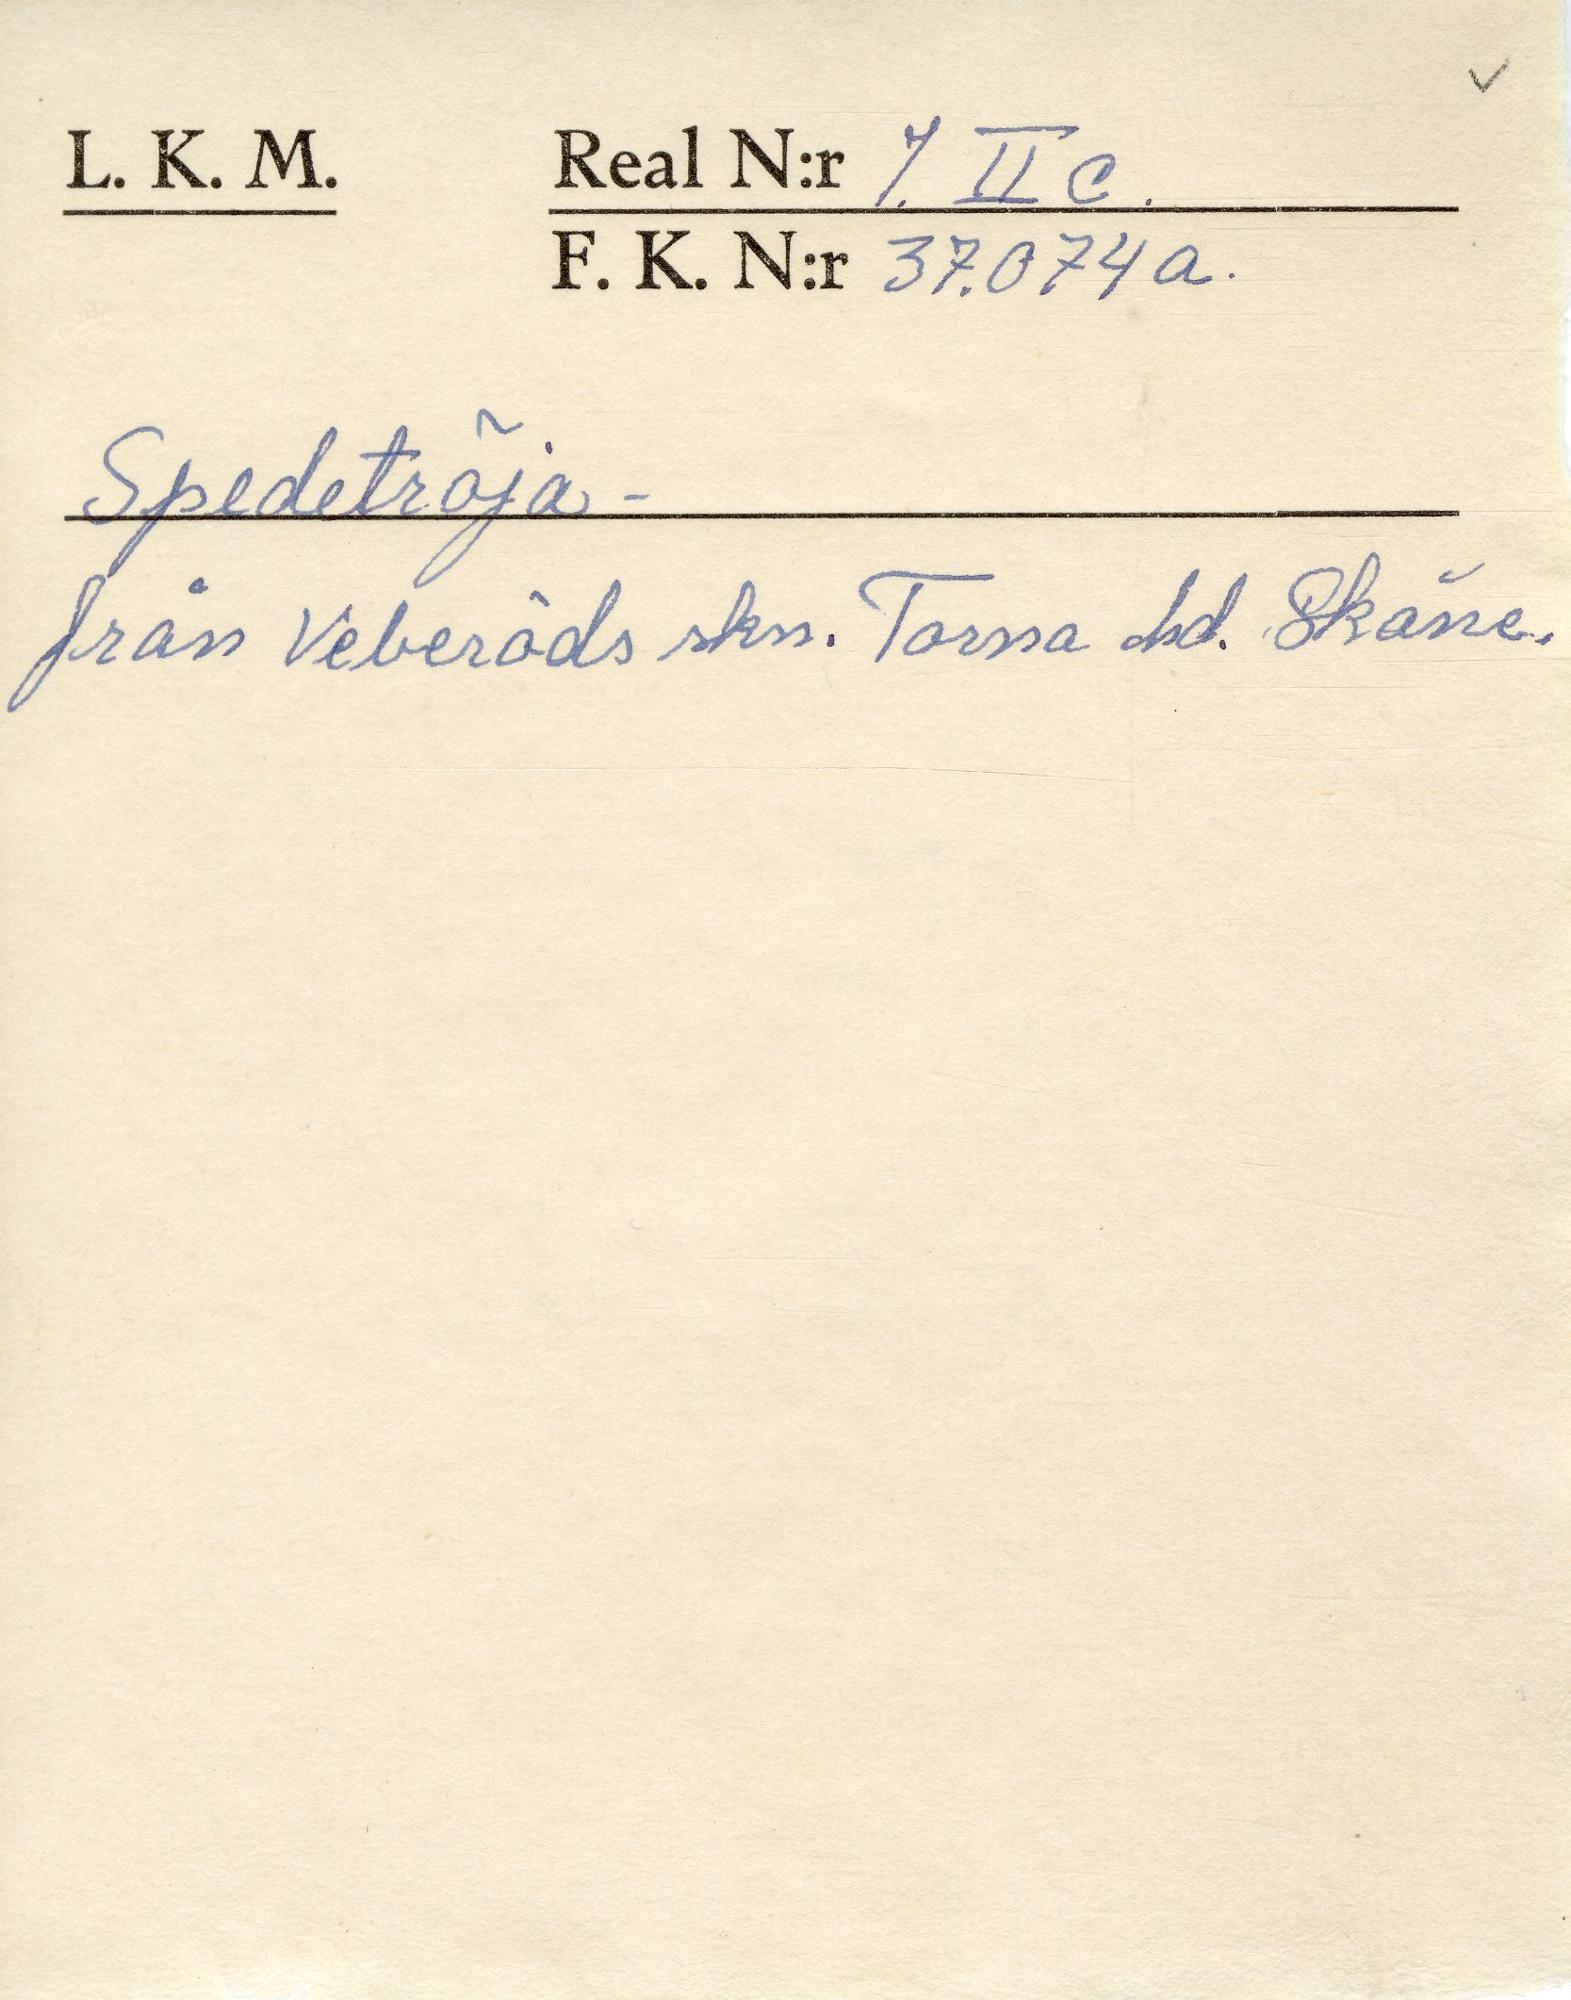 L. K. M.
Real N:r 7. II c.
F. K. N:r 37.074 a.
Spedetröja -
från Veberöds skn. Torna hd. Skåne.